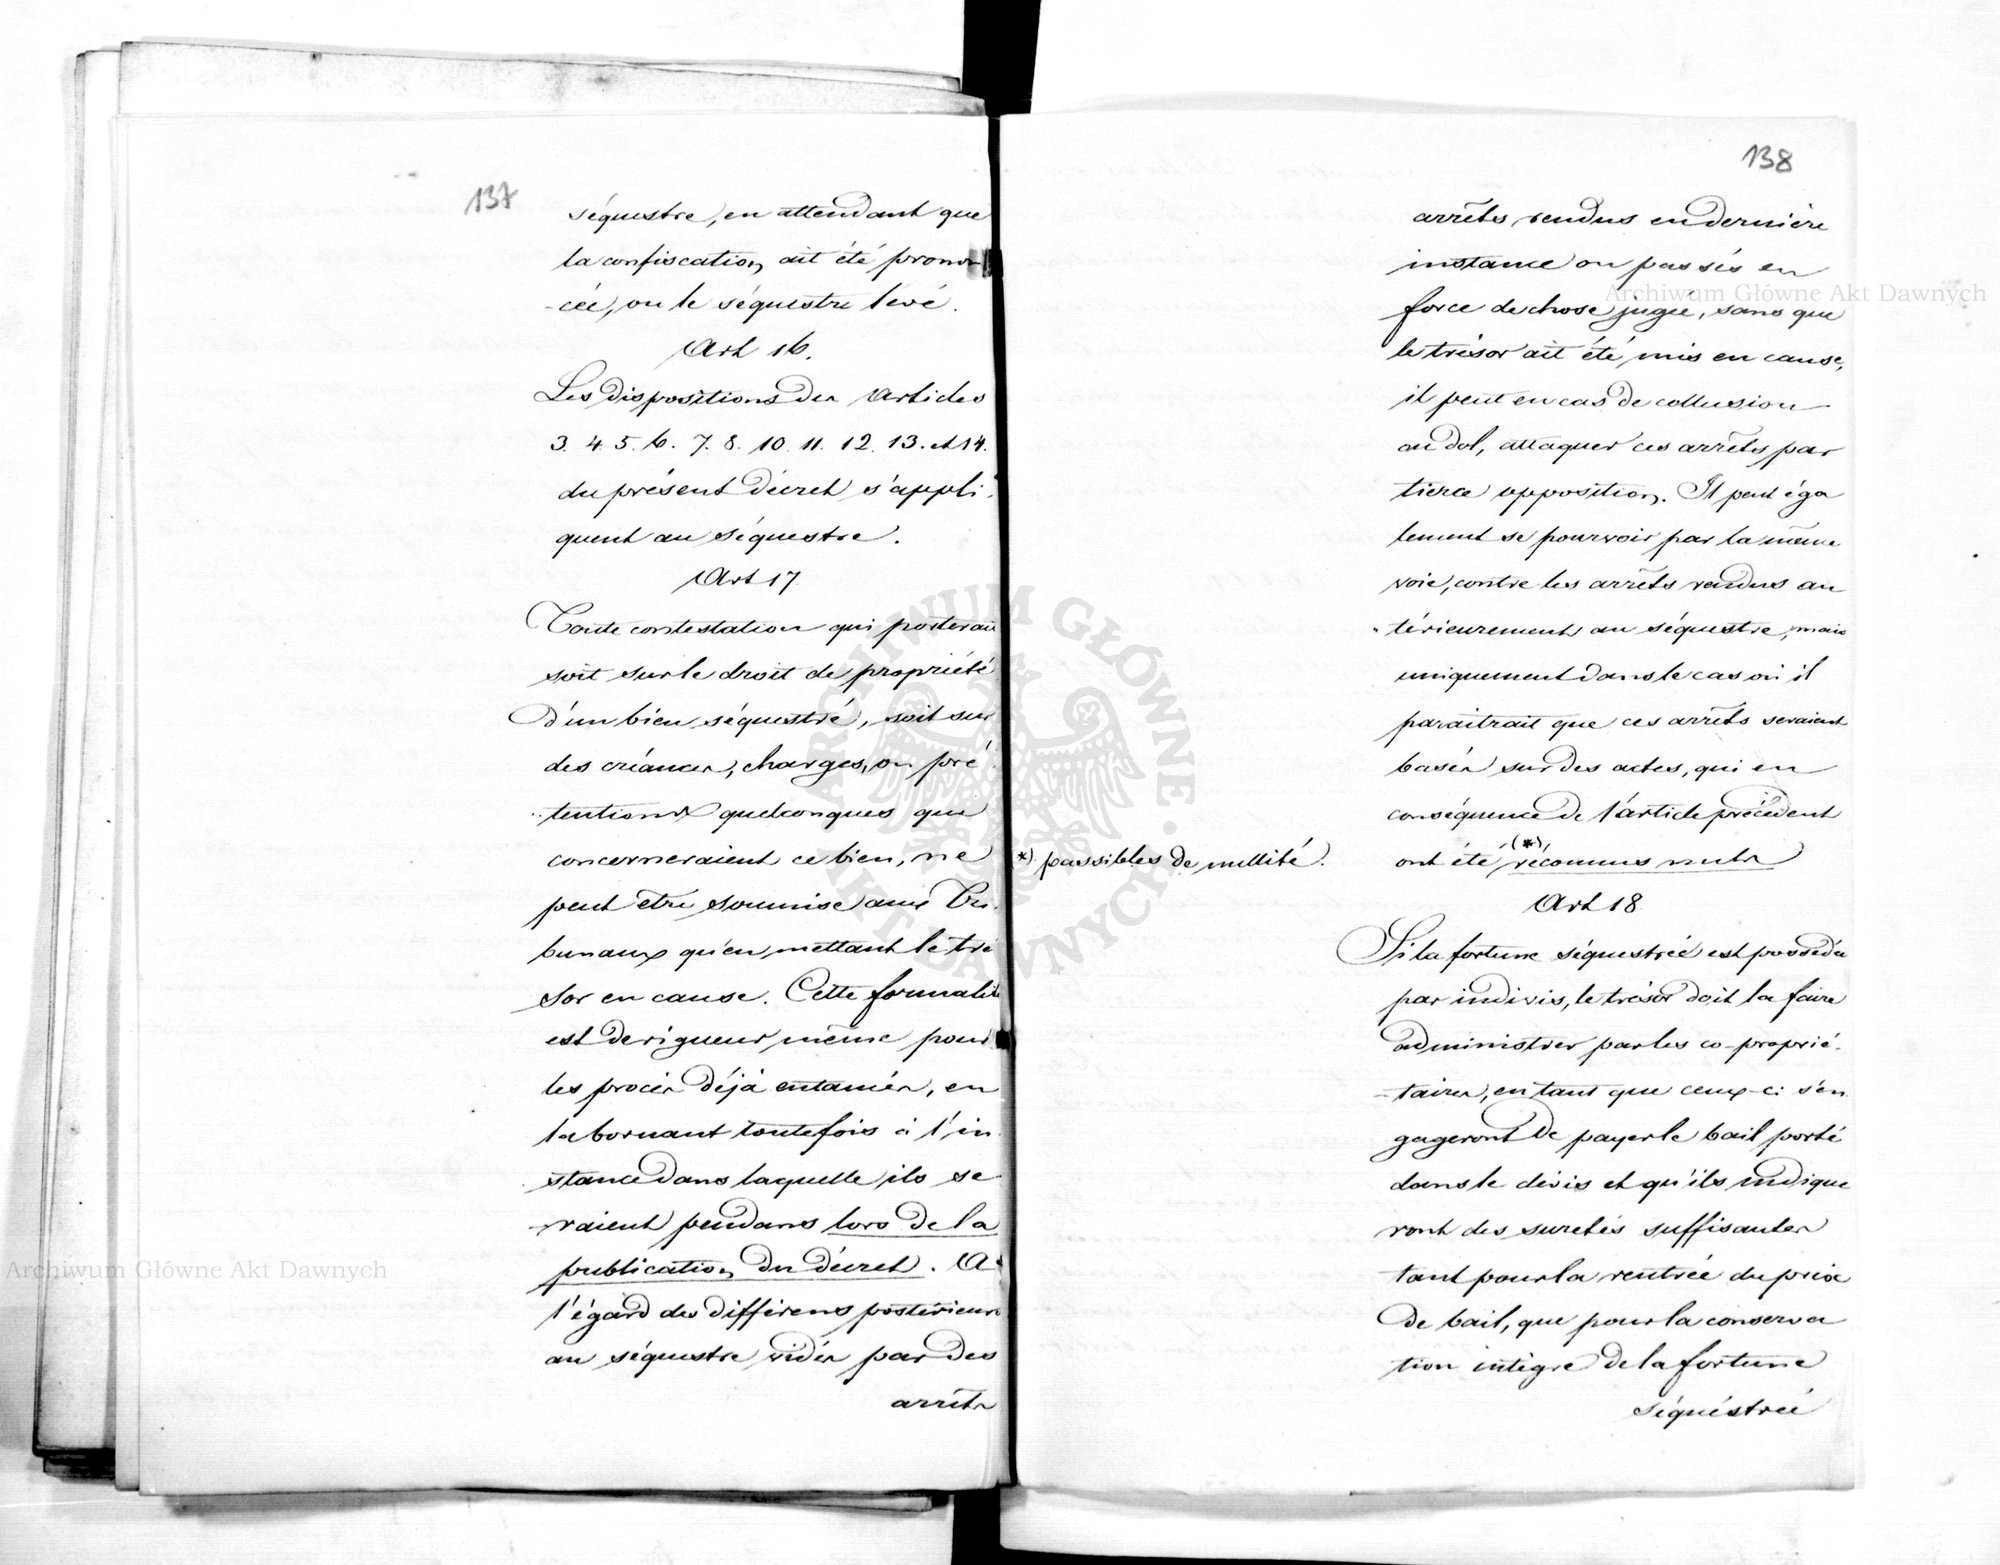 137
séquestre, en attendant que
la confiscation ait été pronon
-cée, ou le séquestre levé.
Art 16.
Les dispositions des Articles
3. 4. 5. 6. 7. 8. 10. 11. 12. 13. et 14.
du présent décret s'appli-
quent au séquestre.
Art 17.
Toute contestation qui porterait
soit sur le droit de propriété
d'un bien séquestré, soit sur
des créances, charges, ou pré
-tentions quelconques qui
concerneraient ce bien, ne
peut etre soumise aux Tri-
bunaux qu'en mettant le tré
sor en cause. Cette formalité
est de rigueur même pour
les procès déjà entamés, en
la bornant toutefois à l'in
stance dans laquelle ils se
-raient pendans lors de la
publication du décret. A
l'égard des différens postérieurs
au séquestre vidés par des
arrêts
138
arrêts rendus en dernière
instance ou passés en
force de chose jugée, sans que
le trésor ait été mis en cause,
il peut en cas de collusion
ou dol, attaquer ces arrêts par
tierce opposition. Il peut éga
lement se pourvoir par la même
voie, contre les arrêts rendus an
-térieurement au séquestre, mais
uniquement dans le cas où il
paraitrait que ces arrêts seraient
basés sur des actes, qui en
conséquence de l'article précédent
ont été (*) réconnus nuls
*) passibles de nullité.
Art 18
Si la fortune séquestrée est possedée
par indivis, le trésor doit la faire
administrer par les co-proprié-
-taires, en tant que ceux-ci s'en
gageront de payer le bail porté
dans le dévis et qu'ils indique
ront des suretés suffisantes
tant pour la rentrée du prix
de bail, que pour la conserva
tion intègre de la fortune
séquéstrée
Archiwum Główne Akt Dawnych
Archiwum Główne Akt Dawnych
ARCHIWUM GŁÓWNE AKT DAWNYCH